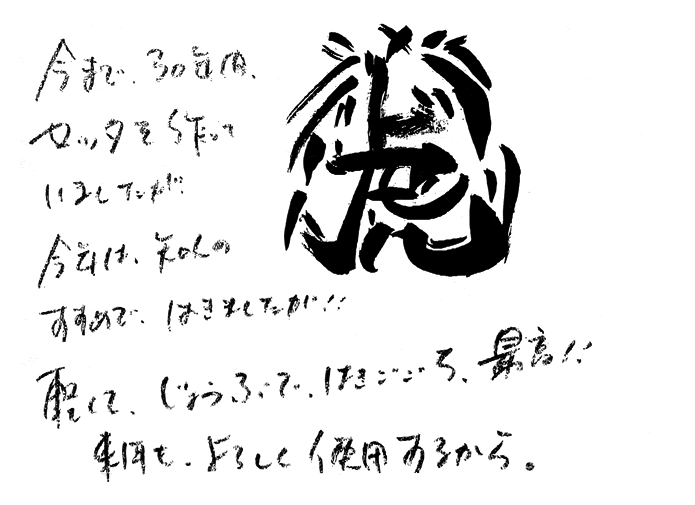 今まで、30年間、
セッタを作って
いましたが
今年は、知人の
すすめで、はきましたが!!
軽くて、じょうぶで、はきごごち、最高!!
来年も、よろしく使用するから。
虎